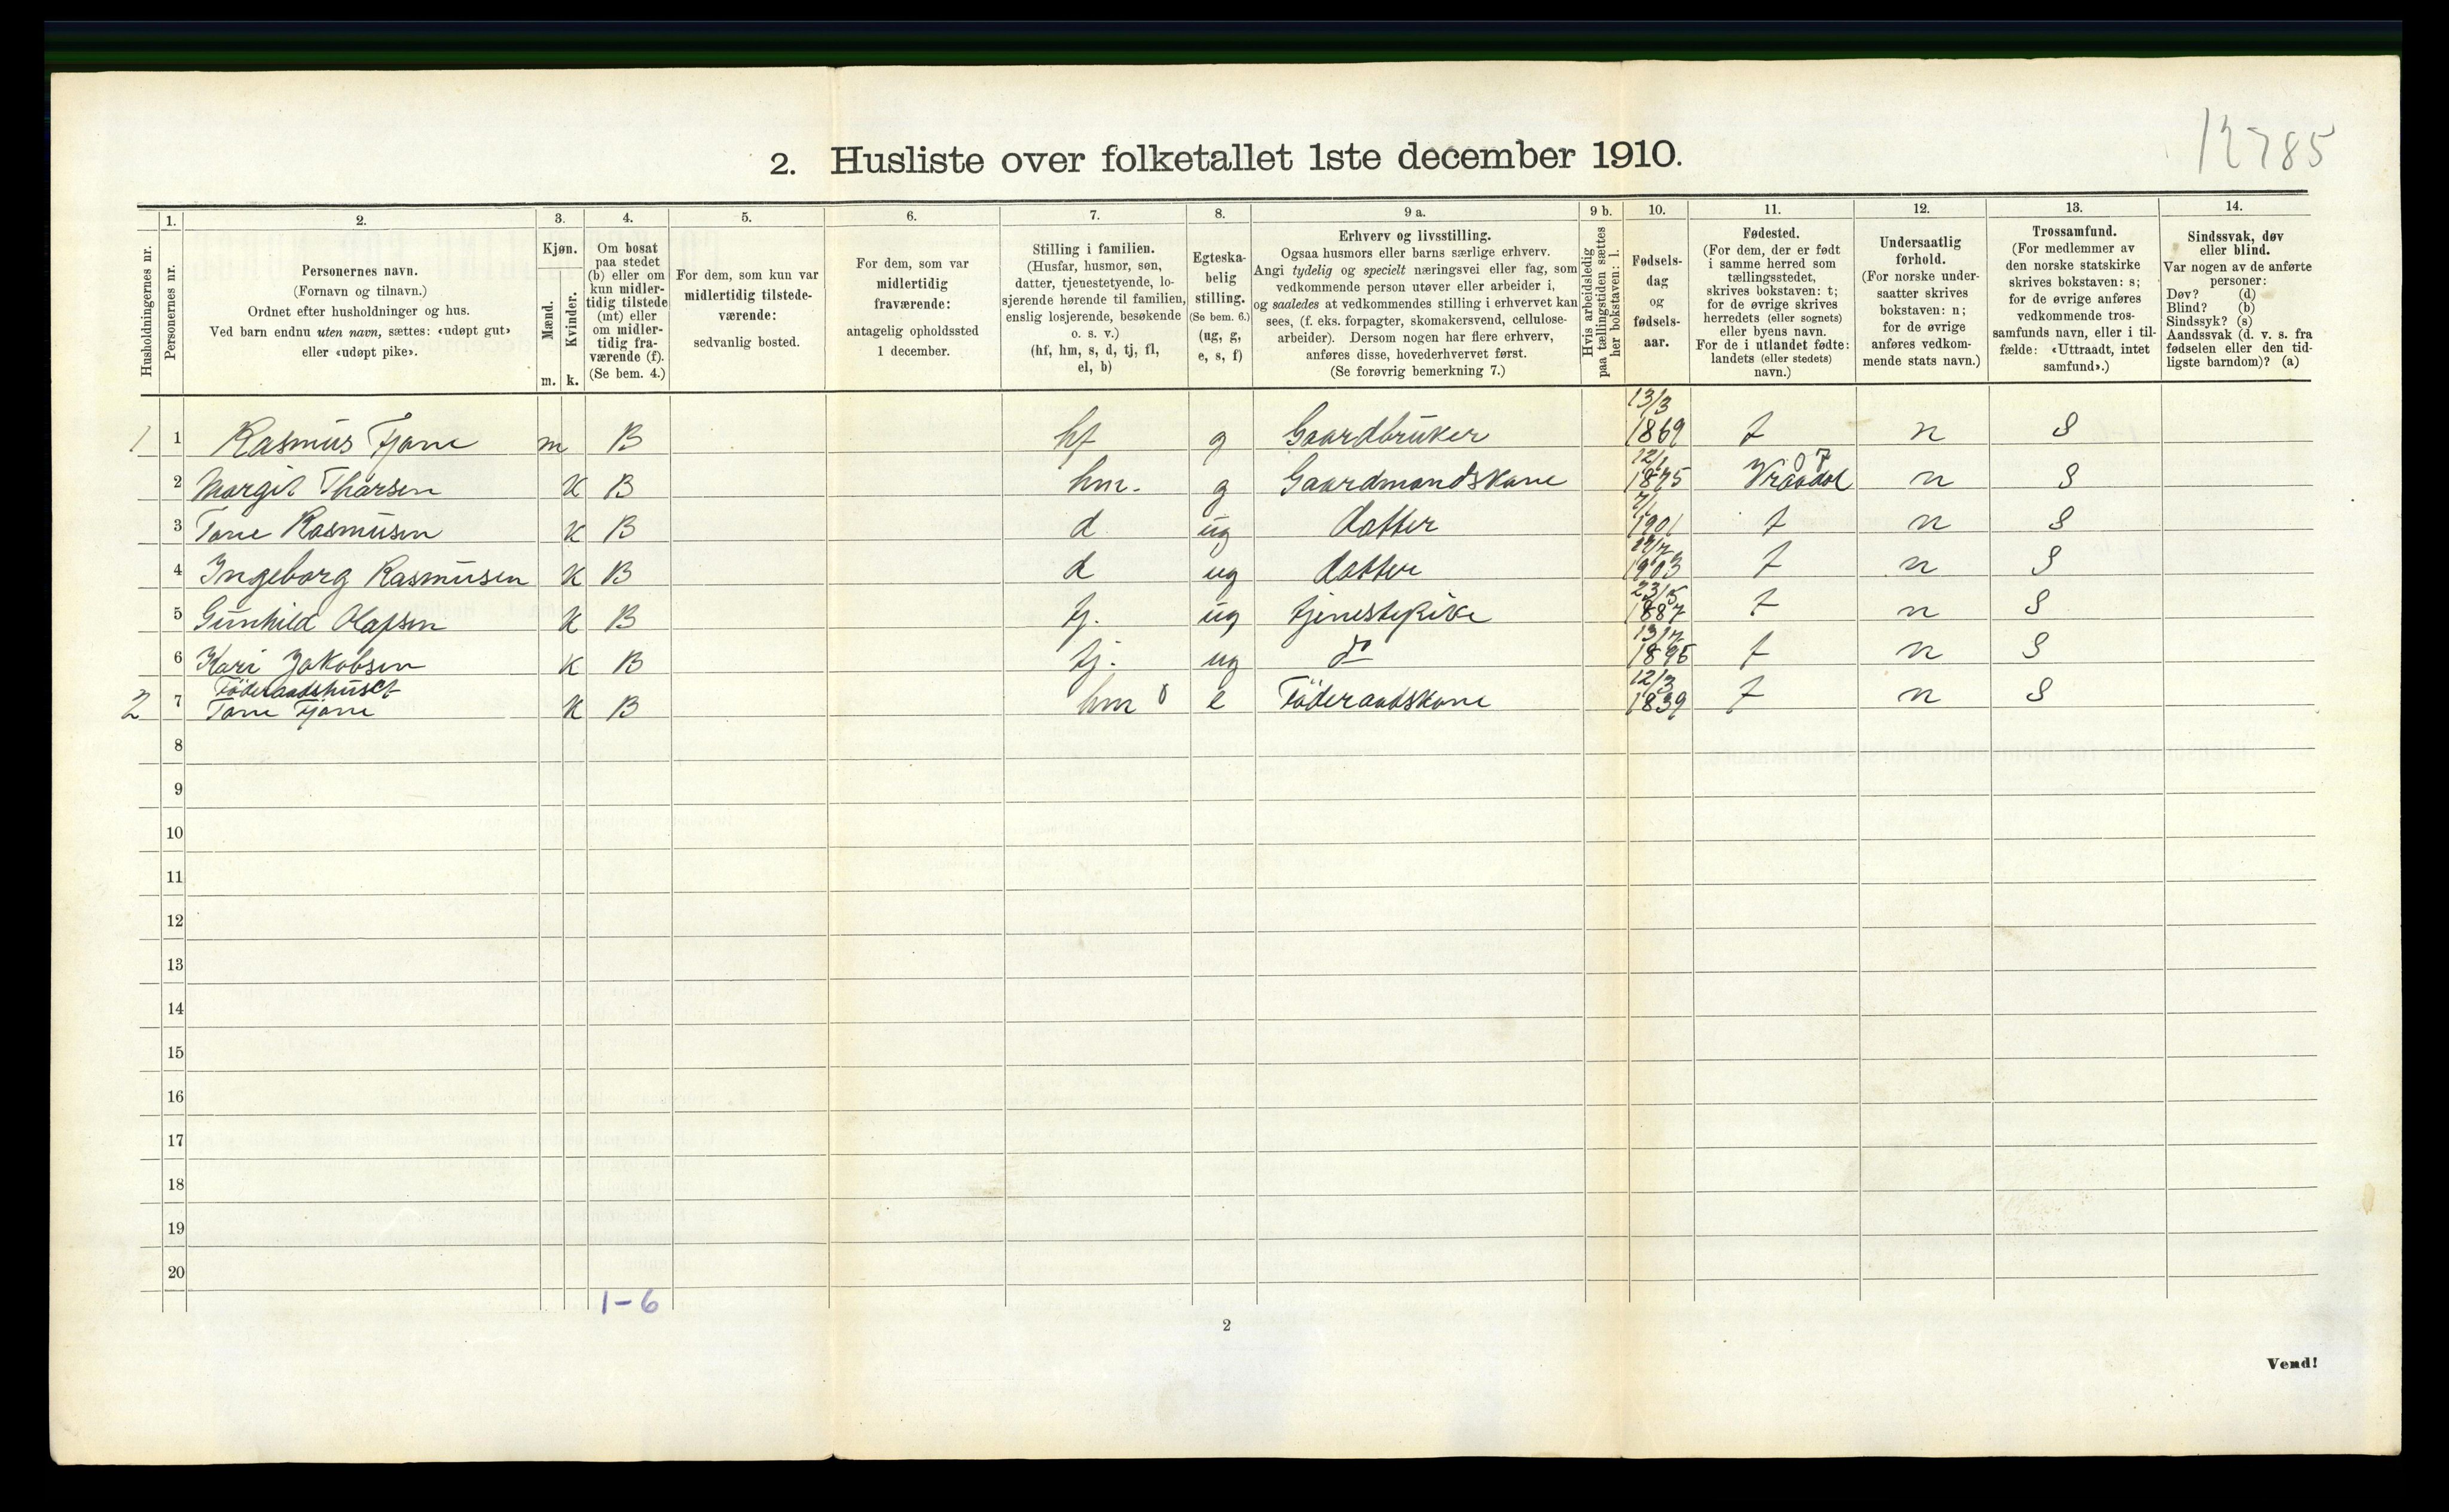 12785
2. Husliste over folketallet 1ste december 1910.
1. 2. 3. 4. 5. 6. 7. 8. 9 a. 9 b. 10. 11. 12. 13. 14.
Husholdningernes nr.
Personernes nr.
Personernes navn.
(Fornavn og tilnavn.)
Ordnet efter husholdninger og hus.
Ved barn endnu uten navn, sættes: «udøpt gut»
eller «udøpt pike».
Kjøn.
Mænd.
Kvinder.
m. k.
Om bosat
paa stedet
(b) eller om
kun midler-
tidig tilstede
(mt) eller
om midler-
tidig fra-
værende (f).
(Se bem. 4.)
For dem, som kun var
midlertidig tilstede-
værende:
sedvanlig bosted.
For dem, som var
midlertidig
fraværende:
antagelig opholdssted
1 december.
Stilling i familien.
(Husfar, husmor, søn,
datter, tjenestetyende, lo-
sjerende hørende til familien,
enslig losjerende, besøkende
o. s. v.)
(hf, hm, s, d, tj, fl,
el, b)
Egteska-
belig
stilling.
(Se bem. 6.)
(ug, g,
e, s, f)
Erhverv og livsstilling.
Ogsaa husmors eller barns særlige erhverv.
Angi tydelig og specielt næringsvei eller fag, som
vedkommende person utøver eller arbeider i,
og saaledes at vedkommendes stilling i erhvervet kan
sees, (f. eks. forpagter, skomakersvend, cellulose-
arbeider). Dersom nogen har flere erhverv,
anføres disse, hovederhvervet først.
(Se forøvrig bemerkning 7.)
Hvis arbeidsledig
paa tællingstiden sættes
her bokstaven: l.
Fødsels-
dag
og
fødsels-
aar.
Fødested.
(For dem, der er født
i samme herred som
tællingsstedet,
skrives bokstaven: t;
for de øvrige skrives
herredets (eller sognets)
eller byens navn.
For de i utlandet fødte:
landets (eller stedets)
navn.)
Undersaatlig
forhold.
(For norske under-
saatter skrives
bokstaven: n;
for de øvrige
anføres vedkom-
mende stats navn.)
Trossamfund.
(For medlemmer av
den norske statskirke
skrives bokstaven: s;
for de øvrige anføres
vedkommende tros-
samfunds navn, eller i til-
fælde: «Uttraadt, intet
samfund».)
Sindssvak, døv
eller blind.
Var nogen av de anførte
personer:
Døv? (d)
Blind? (b)
Sindssyk? (s)
Aandssvak (d. v. s. fra
fødselen eller den tid-
ligste barndom)? (a)
1 1 Rasmus Fjone m B hf g Gaardbruker 13/3 1869 t n S
2 Margit Tharsen K B hm. g Gaardmandskone 12/1 1875 Vraadal 07 n S
3 Tone Rasmusen K B d ug datter 7/1 1901 t n S
4 Ingeborg Rasmusen K B d ug datter 1903 t n S
5 Gunhild Olafsen K B tj. ug tjenestepike 23/5 1887 t n S
6 Kari Jakobsen K B tj. ug do 1895 t n S
Föderaadshuset
2 7 Tone Fjone K B hm e Föderaadskone 12/3 1839 t n S
8
9
10
11
12
13
14
15
16
17
18
19
20
1-6
2
Vend!